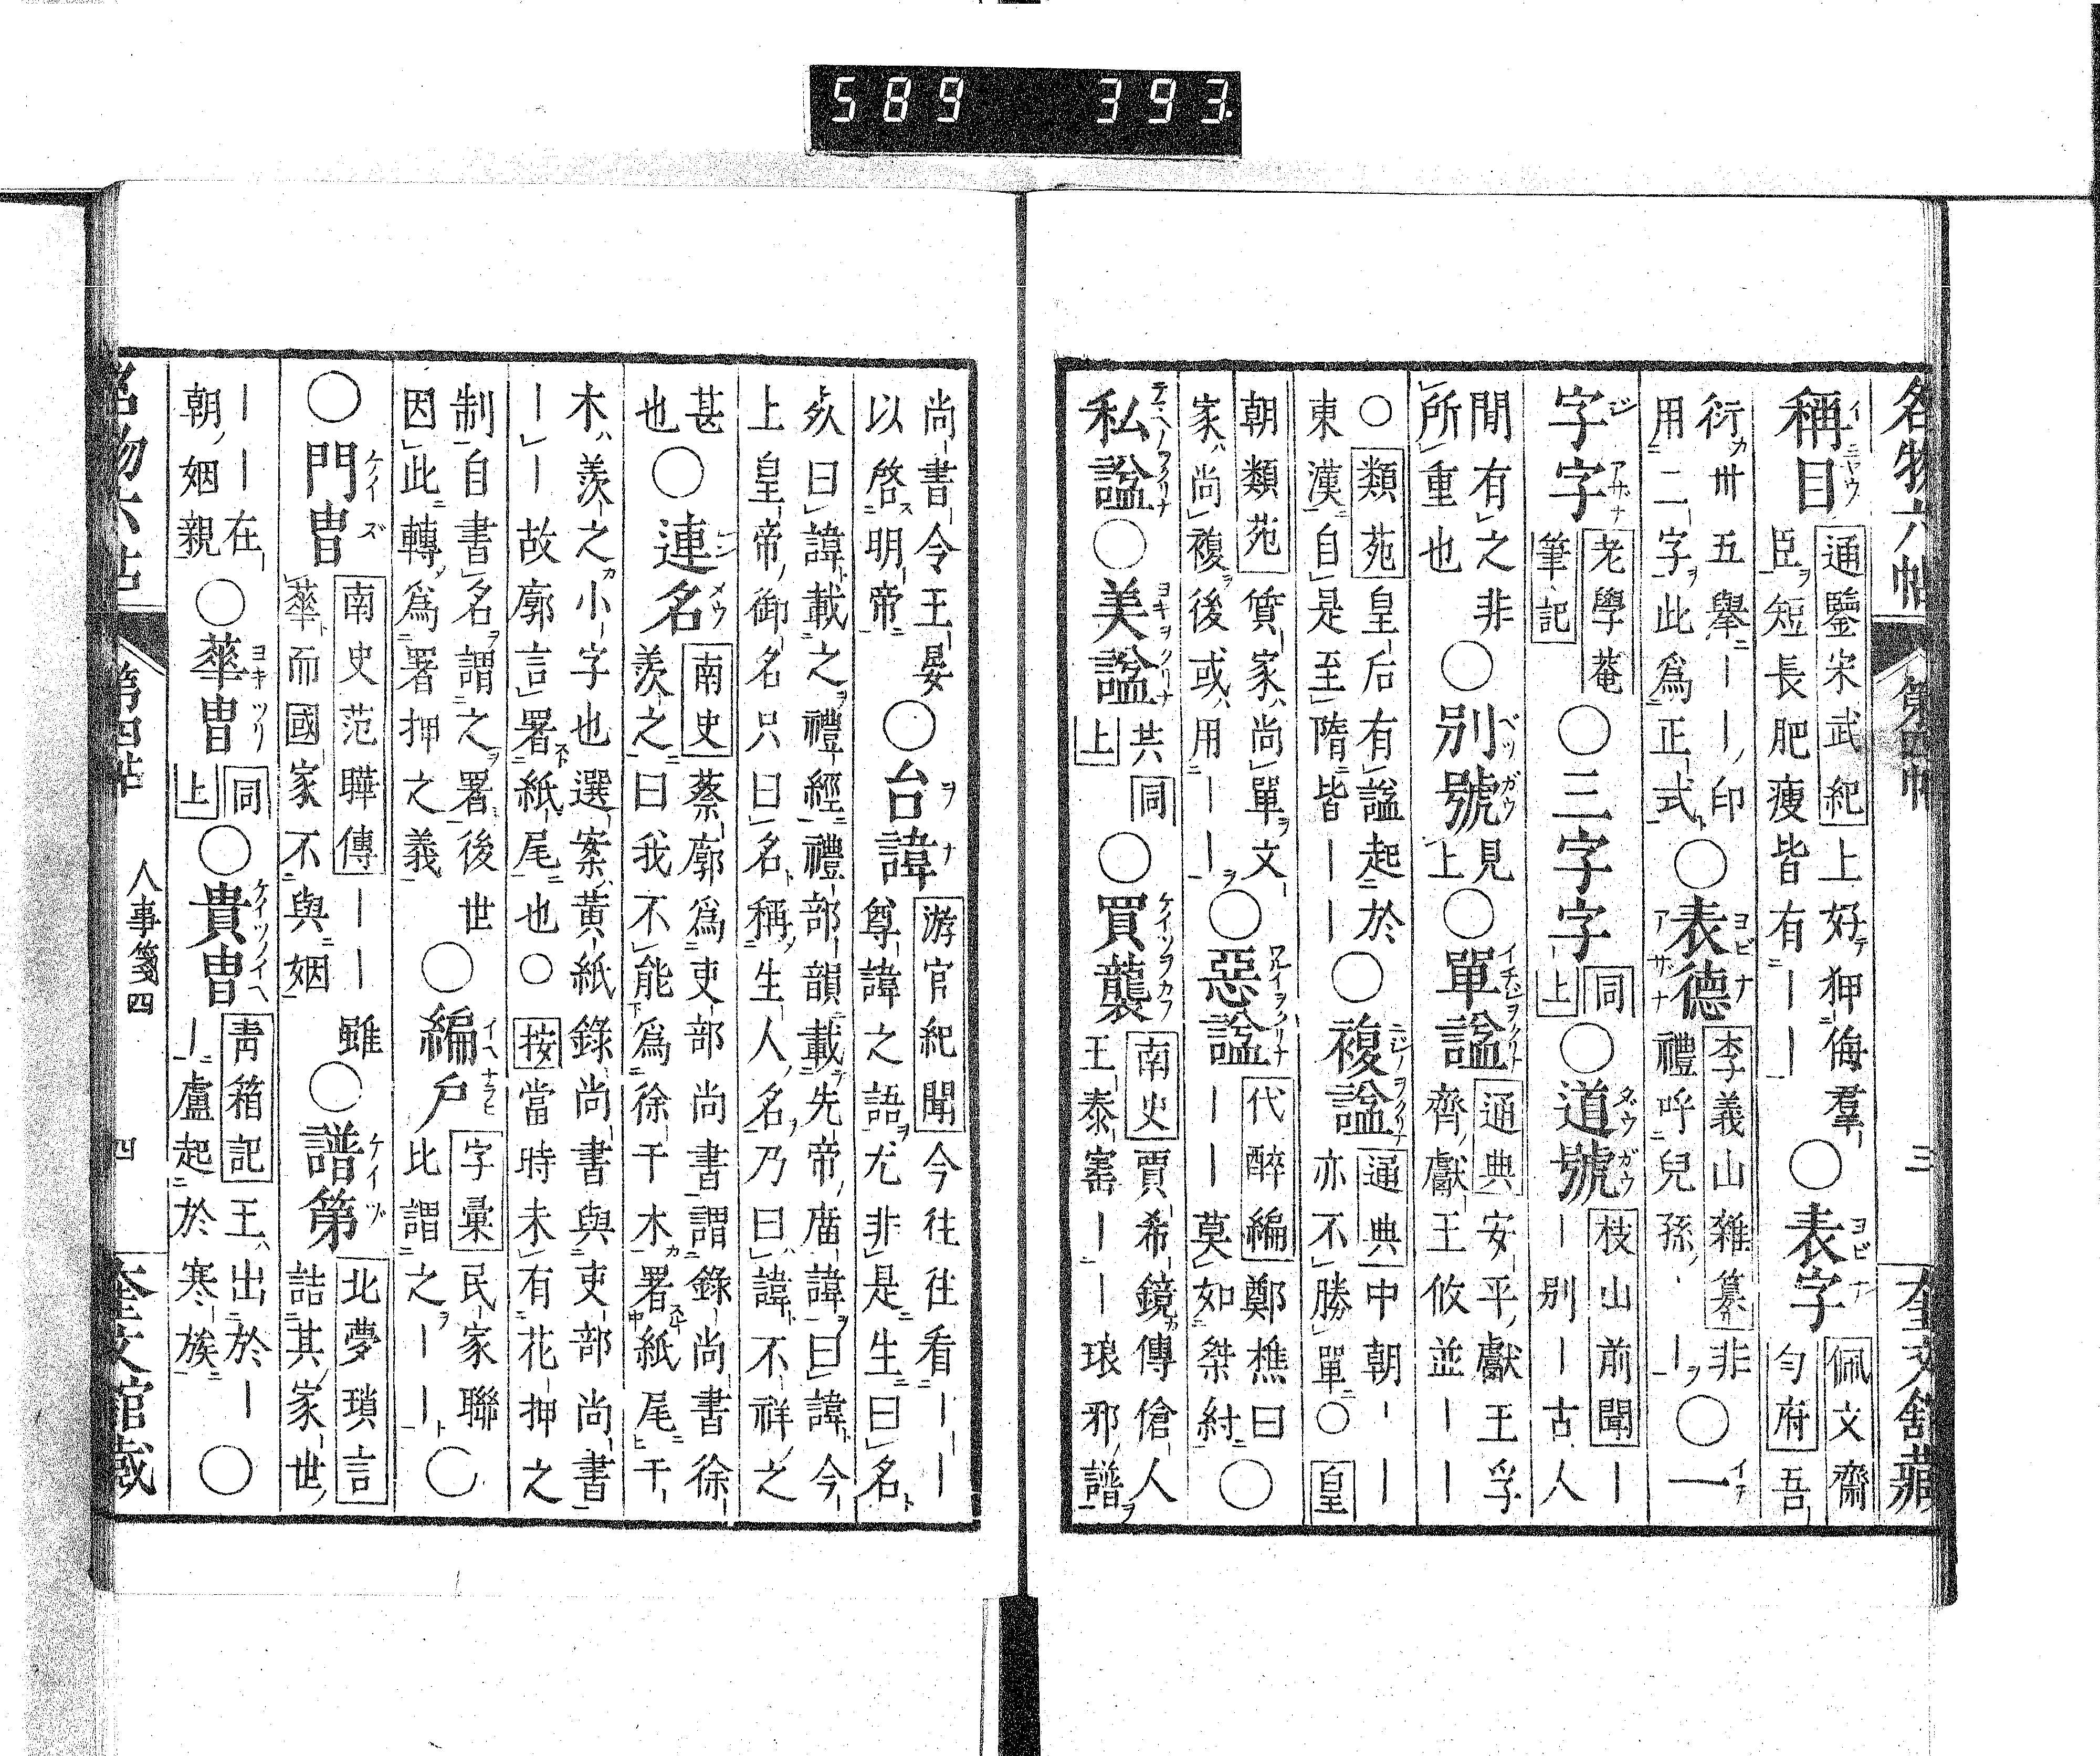 589 393
名物六帖 第四帖 三 奎文館藏
稱目 通鑒宋武紀上好狎侮羣
臣短長肥瘦皆有——○表字 佩文齋
勻府吾
衍卅五擧——印
用二字此爲正式○表德 李義山雜纂非
禮呼兒孫——○一
字字 老學菴
筆記○三字字 同
上○道號 枝山前聞—
—別—古人
閒有之非
所重也○別號 見
上○單謚 通典安平獻王孚
齊獻王攸並——
○類苑皇后有謚起於
東漢自是至隋皆——○複謚 通典中朝——
亦不勝單○皇
朝類苑質家尚單文
家尚複後或用——○惡謚 代醉編鄭樵曰
——莫如桀紂○
私謚○美謚 共同
上○買襲 南史賈希鏡傳傖人
王泰寚——琅邪譜
尚書令王晏
以啓明帝○台諱 游官紀聞今往往看——
尊諱之語尤非是生曰名
死曰諱載之禮經禮部韻載先帝廟諱曰諱今
上皇帝御名只曰名稱生人名乃曰諱不祥之
甚
也○連名 南史蔡廓爲吏部尚書謂錄尚書徐
羨之曰我不能爲徐干木署紙尾干
木羨之小字也選案黃紙錄尚書與吏部尚書
——故廓言署紙尾也○按當時未有花押之
制自書名謂之署後世
因此轉爲署押之義○編戶 字彙民家聯
比謂之——○
○門胄 南史范曄傳——雖
華而國家不與姻○譜第 北夢瑣言
詰其家世
——在
朝姻親○華胄 同
上○貴胄 青箱記王出於—
—盧起於寒族○
名物六帖 第四帖 人事箋四 四 奎文館藏